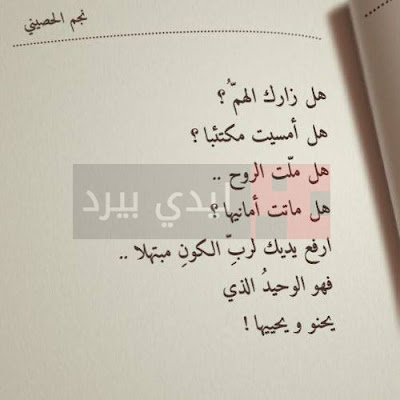 نجم الحصيني
هل زارك الهمُّ ؟
هل أمسيت مكتئبا ؟
هل ملّت الروح ..
هل ماتت أمانيها ؟
ليدي بيرد
ارفع يديك لربِّ الكونِ مبتهلا ..
فهو الوحيدُ الذي
يحنو و يحييها !